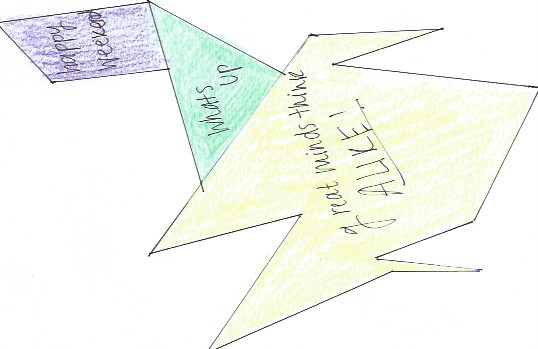 happy
weeked
whats
up
great minds think
ALIKE!